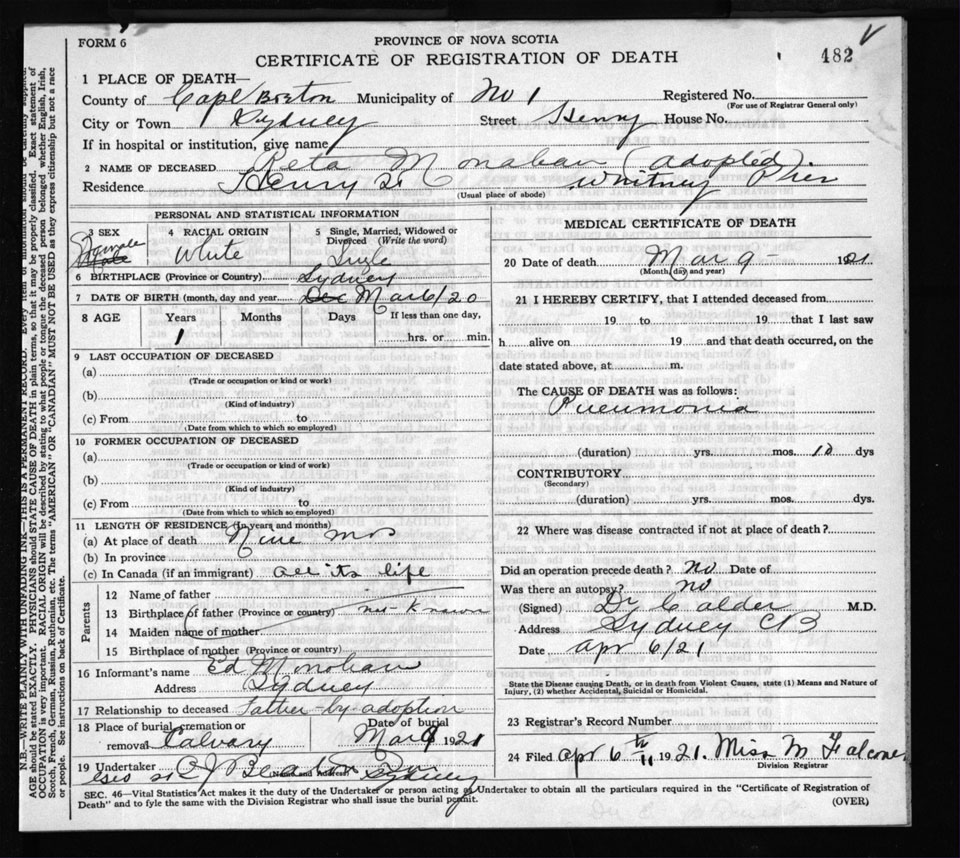 FORM 6
PROVINCE OF NOVA SCOTIA
CERTIFICATE OF REGISTRATION OF DEATH
482
1 PLACE OF DEATH—
County of Cape Breton Municipality of No 1 Registered No.
(For use of Registrar General only)
City or Town Sydney Street Henry House No.
If in hospital or institution, give name
2 NAME OF DECEASED Reta Monahan (adopted).
Residence Henry St Whitney Pier
(Usual place of abode)
PERSONAL AND STATISTICAL INFORMATION
3 SEX
Female
Male
4 RACIAL ORIGIN
White
5 Single, Married, Widowed or Divorced (Write the word)
Single
6 BIRTHPLACE (Province or Country) Sydney
7 DATE OF BIRTH (month, day and year) Dec Mar 6/20
8 AGE Years Months Days If less than one day,
1 hrs. or min.
9 LAST OCCUPATION OF DECEASED
(a)
(Trade or occupation or kind or work)
(b)
(Kind of industry)
(c) From to
(Date from which to which so employed)
10 FORMER OCCUPATION OF DECEASED
(a)
(Trade or occupation or kind of work)
(b)
(Kind of industry)
(c) From to
(Date from which to which so employed)
11 LENGTH OF RESIDENCE (In years and months)
(a) At place of death Nine mos
(b) In province
(c) In Canada (if an immigrant) all its life
Parents
12 Name of father
13 Birthplace of father (Province or country) not known
14 Maiden name of mother
15 Birthplace of mother (Province or country)
16 Informant's name Ed Monohan
Address Sydney
17 Relationship to deceased Father-by-adoption
18 Place of burial, cremation or removal Calvary
Date of burial Mar 9 1921
19 Undertaker
(Name and Address) Sydney
MEDICAL CERTIFICATE OF DEATH
20 Date of death Mar 9 - 1921
(Month, day and year)
21 I HEREBY CERTIFY, that I attended deceased from
19 to 19 that I last saw
h alive on 19 and that death occurred, on the
date stated above, at m.
The CAUSE OF DEATH was as follows:
Pneumonia
(duration) yrs. mos. 10 dys
CONTRIBUTORY
(Secondary)
(duration) yrs. mos. dys.
22 Where was disease contracted if not at place of death?
Did an operation precede death? No Date of
Was there an autopsy? no
(Signed) Dr Calder M.D.
Address Sydney CB
Date Apr 6/21
State the Disease causing Death, or in death from Violent Causes, state (1) Means and Nature of
Injury, (2) whether Accidental, Suicidal or Homicidal.
23 Registrar's Record Number
24 Filed Apr 6th 1921. Miss M Falconer
Division Registrar
SEC. 46—Vital Statistics Act makes it the duty of the Undertaker or person acting as Undertaker to obtain all the particulars required in the "Certificate of Registration of
Death" and to fyle the same with the Division Registrar who shall issue the burial permit.
(OVER)
N.B.—WRITE PLAINLY WITH UNFADING INK—THIS IS A PERMANENT RECORD. Every item of information should be carefully supplied.
AGE should be stated EXACTLY. PHYSICIANS should STATE CAUSE OF DEATH in plain terms, so that it may be properly classified. Exact statement of
OCCUPATION is very important. RACIAL ORIGIN will be described by stating to what people or tongue the deceased person belonged whether English, Irish,
Scotch, French, German, Russian, Ruthenian, etc. The terms "AMERICAN" OR "CANADIAN" MUST NOT BE USED as they express citizenship but not a race
or people. See instructions on back of Certificate.